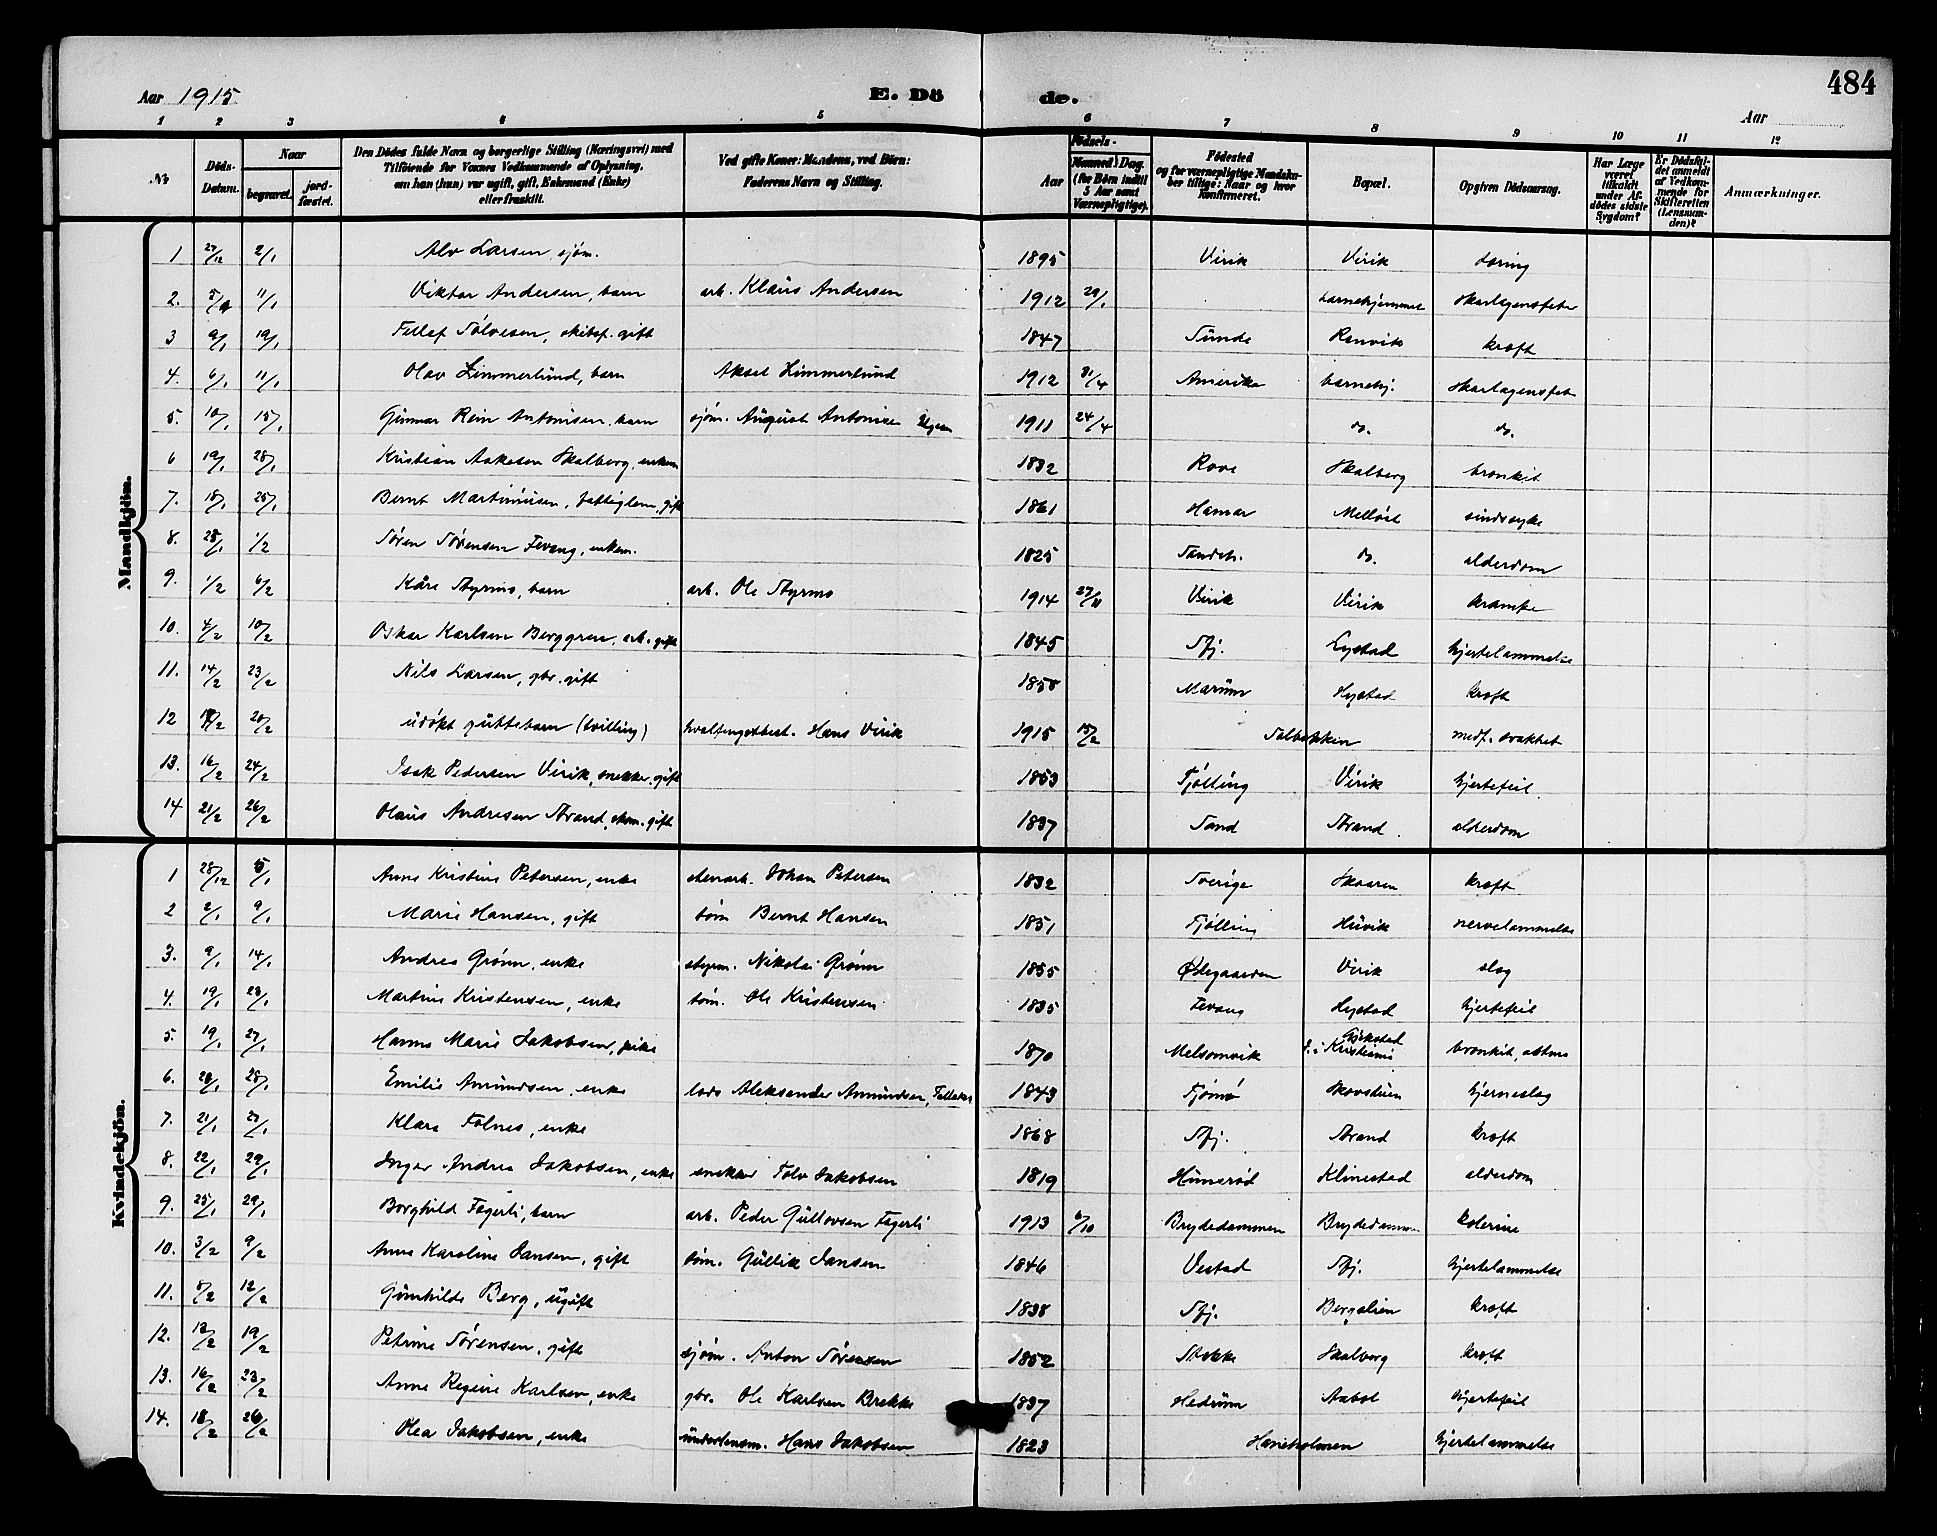 484
Aar 1915 E. Dö de. Aar
1 2 3 4 5 6 7 8 9 10 11 12
No
Döds-Datum.
Naar begravet. jordfæstet.
Den Dödes fulde Navn og borgerlige Stilling (Næringsvei) med Tilföiende for Voxnes Vedkommende af Oplysning, om han (hun) var ugift, gift, Enkemand (Enke) eller fraskilt.
Ved gifte Koner: Mandens, ved Börn: Faderens Navn og Stilling.
Födsels-
Aar
Maaned Dag (for Börn indtil 5 Aar samt Værnepligtige).
Födested og for værnepligtige Mandskaber tillige: Naar og hvor konfirmeret.
Bopæl.
Opgiven Dödsaarsag.
Har Læge været tilkaldt under Afdödes sidste Sygdom?
Er Dödsfaldet anmeldt af Vedkommende for Skifteretten (Lensmanden)?
Anmærkninger.
Mandkjön.
1 27/12 2/1 Alv Larsen, sjøm. 1895 Virik Virik tæring
2. 11/1 Viktor Andersen, barn arb. Klaus Andersen 1912 29/1 barnehjemmet skarlagensfeber
3 9/1 19/1 Tellef Sølvesen, skibsf. gift 1847 Sunde Ranvik kræft
4. 6/1 11/1 Olav Zimmerlund, barn Aksel Zimmerlund 1912 Amerika barnehj. skarlagensfeb
5. 10/1 15/1 Gunnar Rein Antonisen, barn sjøm. August Antonisen 1911 24/4 do. do.
6 19/1 28/1 Kristian Aakesen Skalberg, enkem 1832 Rove Skalberg bronkit
7. 18/1 25/1 Bernt Martiniusen, fattiglem, gift 1861 Hamar Melløst sindssyke
8. 28/1 1/2 Søren Sørensen Fevang, enkem. 1825 Sandeh. do. alderdom
9. 1/2 6/2 Kåre Styrmo, barn arb. Ole Styrmo 1914 27/11 Virik Virik krampe
10. 4/2 10/2 Oskar Karlsen Berggren, arb. gift 1845 Sfj. Lystad hjertelammelse
11. 14/2 23/2 Nils Larsen, gbr. gift 1858 Marum Hystad kræft
12 20/2 udøpt guttebarn (tvilling) hvalfangstbest. Hans Virik 1915 15/2 Solbakken medf. svakhet
13. 16/2 24/2 Isak Pedersen Virik, snekker, gift 1853 Tjølling Virik hjertefeil.
14 21/2 26/2 Olaus Andresen Strand, skom. gift 1837 Sand Strand. alderdom
Kvindekjön.
1 28/12 5/1 Anne Kristine Petersen, enke stenarb. Johan Petersen 1832 Sverige Skaaren kræft
2 2/1 9/1 Marie Hansen, gift tøm Bernt Hansen 1851 Tjølling Huvik nervelammelse
3. 9/1 14/1 Andrea Grønn, enke styrm. Nikolai Grønn 1855 Ødegaarden Virik slag
4. 19/1 23/1 Martine Kristensen, enke tøm. Ole Kristensen 1835 Fevang Hystad hjertefeil
5. 19/1 27/1 Hanna Marie Jakobsen, pike 1870 Melsomvik Gokstad d. i Kristiania bronkit, astma
6. 28/1 Emilie Amundsen, enke lods Aleksander Amundsen, 1843 Tjømø Skovstuen hjerneslag
7. 21/1 27/1 Klara Folnes, enke 1868 Sfj. Strand kræft
8. 22/1 29/1 Inger Andrea Jakobsen, enke snekker Tolv Jakobsen 1819 Hunerød Klinestad alderdom
9. 25/1 29/1 Borghild Fagerli, barn arb. Peder Gullovsen Fagerli 1913 6/10 Brydedammen Brydedammen kolerine
10. 3/2 9/2 Anne Karoline Jansen, gift tøm. Gullik Jansen 1846 Vestad Sfj. hjertelammelse
11. 8/2 12/2 Gunhilde Berg, ugift 1838 Sfj. Bergalien kræft
12. 12/2 19/2 Petrine Sørensen, gift sjøm. Anton Sørensen 1852 Stokke Skalberg kræft
13. 16/2 23/2 Anne Regine Karlsen, enke gbr. Ole Karlsen Brekke 1837 Hedrum Aabol hjertefeil
14. 18/2 26/2 Olea Jakobsen, enke underlensm. Hans Jakobsen 1823 Haneholmen hjertelammelse